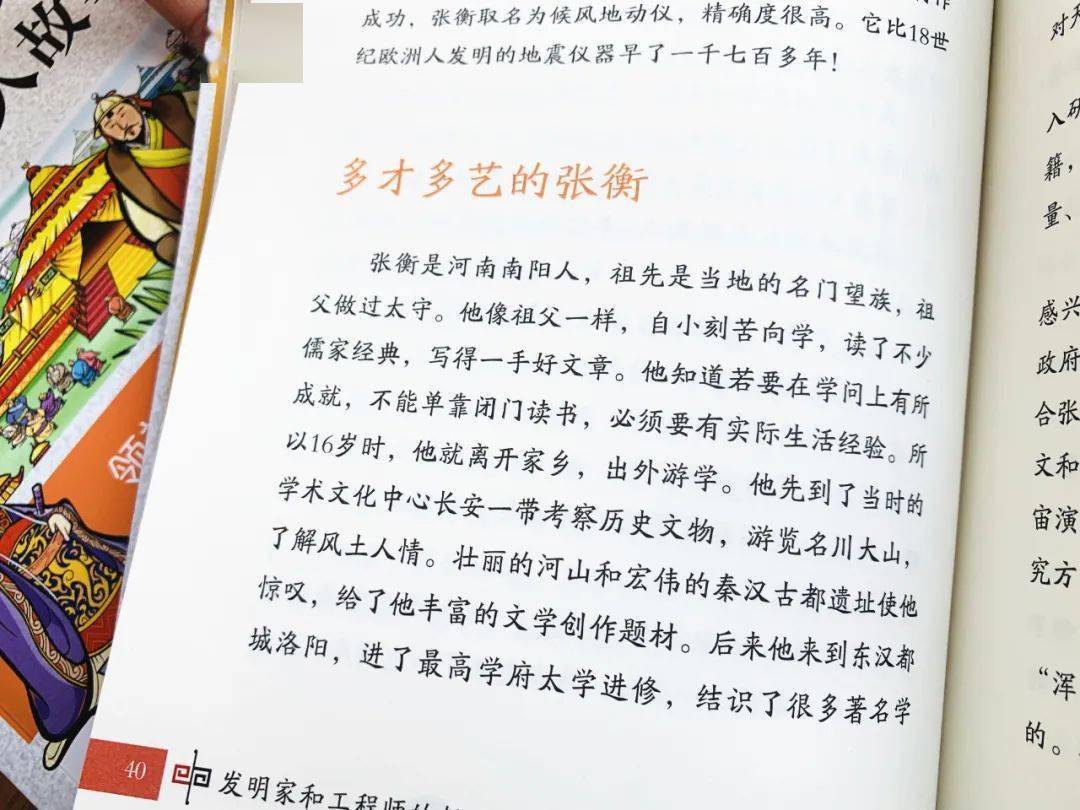 人故
领
成功，张衡取名为候风地动仪，精确度很高。它比18世
纪欧洲人发明的地震仪器早了一千七百多年！
多才多艺的张衡
张衡是河南南阳人，祖先是当地的名门望族，祖
父做过太守。他像祖父一样，自小刻苦向学，读了不少
儒家经典，写得一手好文章。他知道若要在学问上有所
成就，不能单靠闭门读书，必须要有实际生活经验。所
以16岁时，他就离开家乡，出外游学。他先到了当时的
学术文化中心长安一带考察历史文物，游览名川大山，
了解风土人情。壮丽的河山和宏伟的秦汉古都遗址使他
惊叹，给了他丰富的文学创作题材。后来他来到东汉都
城洛阳，进了最高学府太学进修，结识了很多著名学
40
发明家和工程师的
对天
入研
籍，
量、
感兴
政府
合张
文和
宙演
究方
“浑
的。